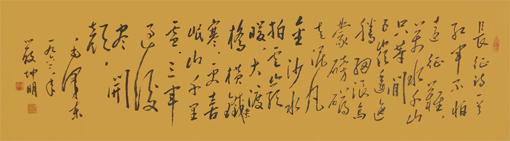 長征詩一首
红軍不怕
遠征難
萬水千山
只等閒
五嶺逶迤
騰細浪烏
蒙磅礴
走泥丸
金沙水
拍雲崖
暖大渡
橋橫鐵
寒更喜
岷山千里
雪三軍
過後
盡開
顏
毛澤東
一九六二年
嚴坤明